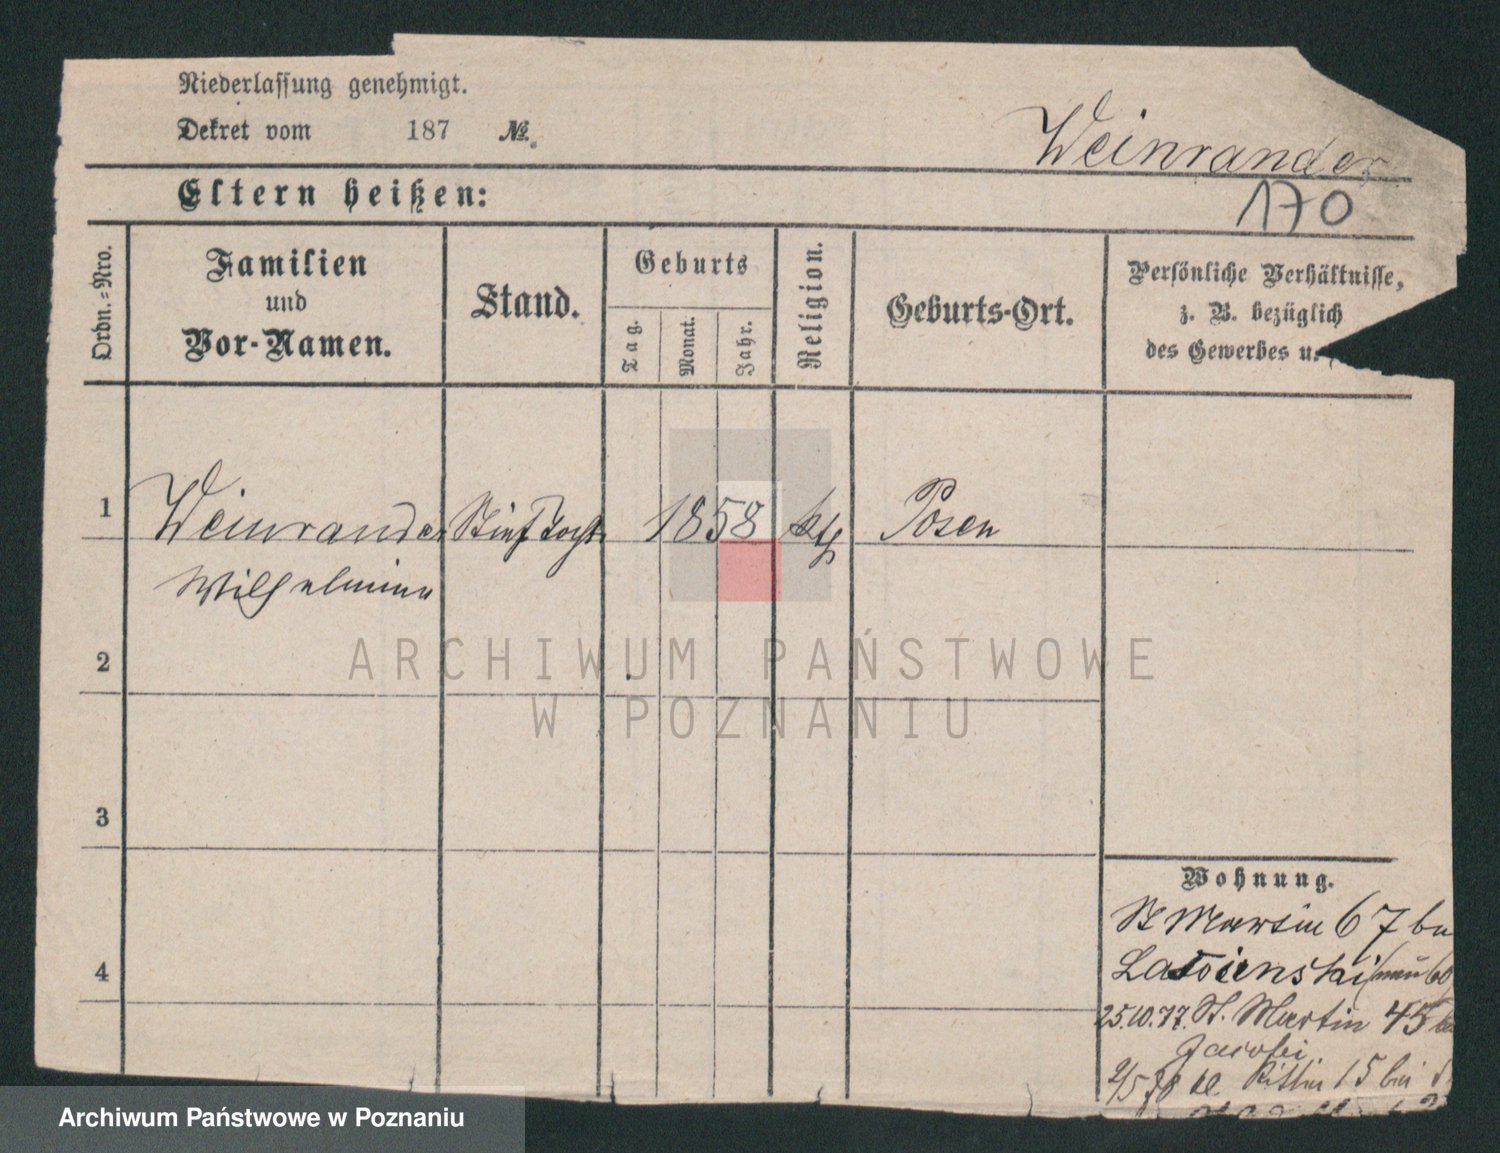 Niederlassung genehmigt.
Dekret vom 187 №.
Weinrander
170
Eltern heißen:
Ordn.-Nro.
Familien und Vor-Namen.
Stand.
Geburts
Tag.
Monat.
Jahr.
Religion.
Geburts-Ort.
Persönliche Verhältnisse,
z. B. bezüglich
des Gewerbes u.
1 Weinrander 1858 kth Posen
Wilhelmine
2
3
4
Wohnung.
St Martin 67 bei
25.10.77. St. Martin 45
Jacobi
15 bei
ARCHIWUM PAŃSTWOWE
W POZNANIU
Archiwum Państwowe w Poznaniu